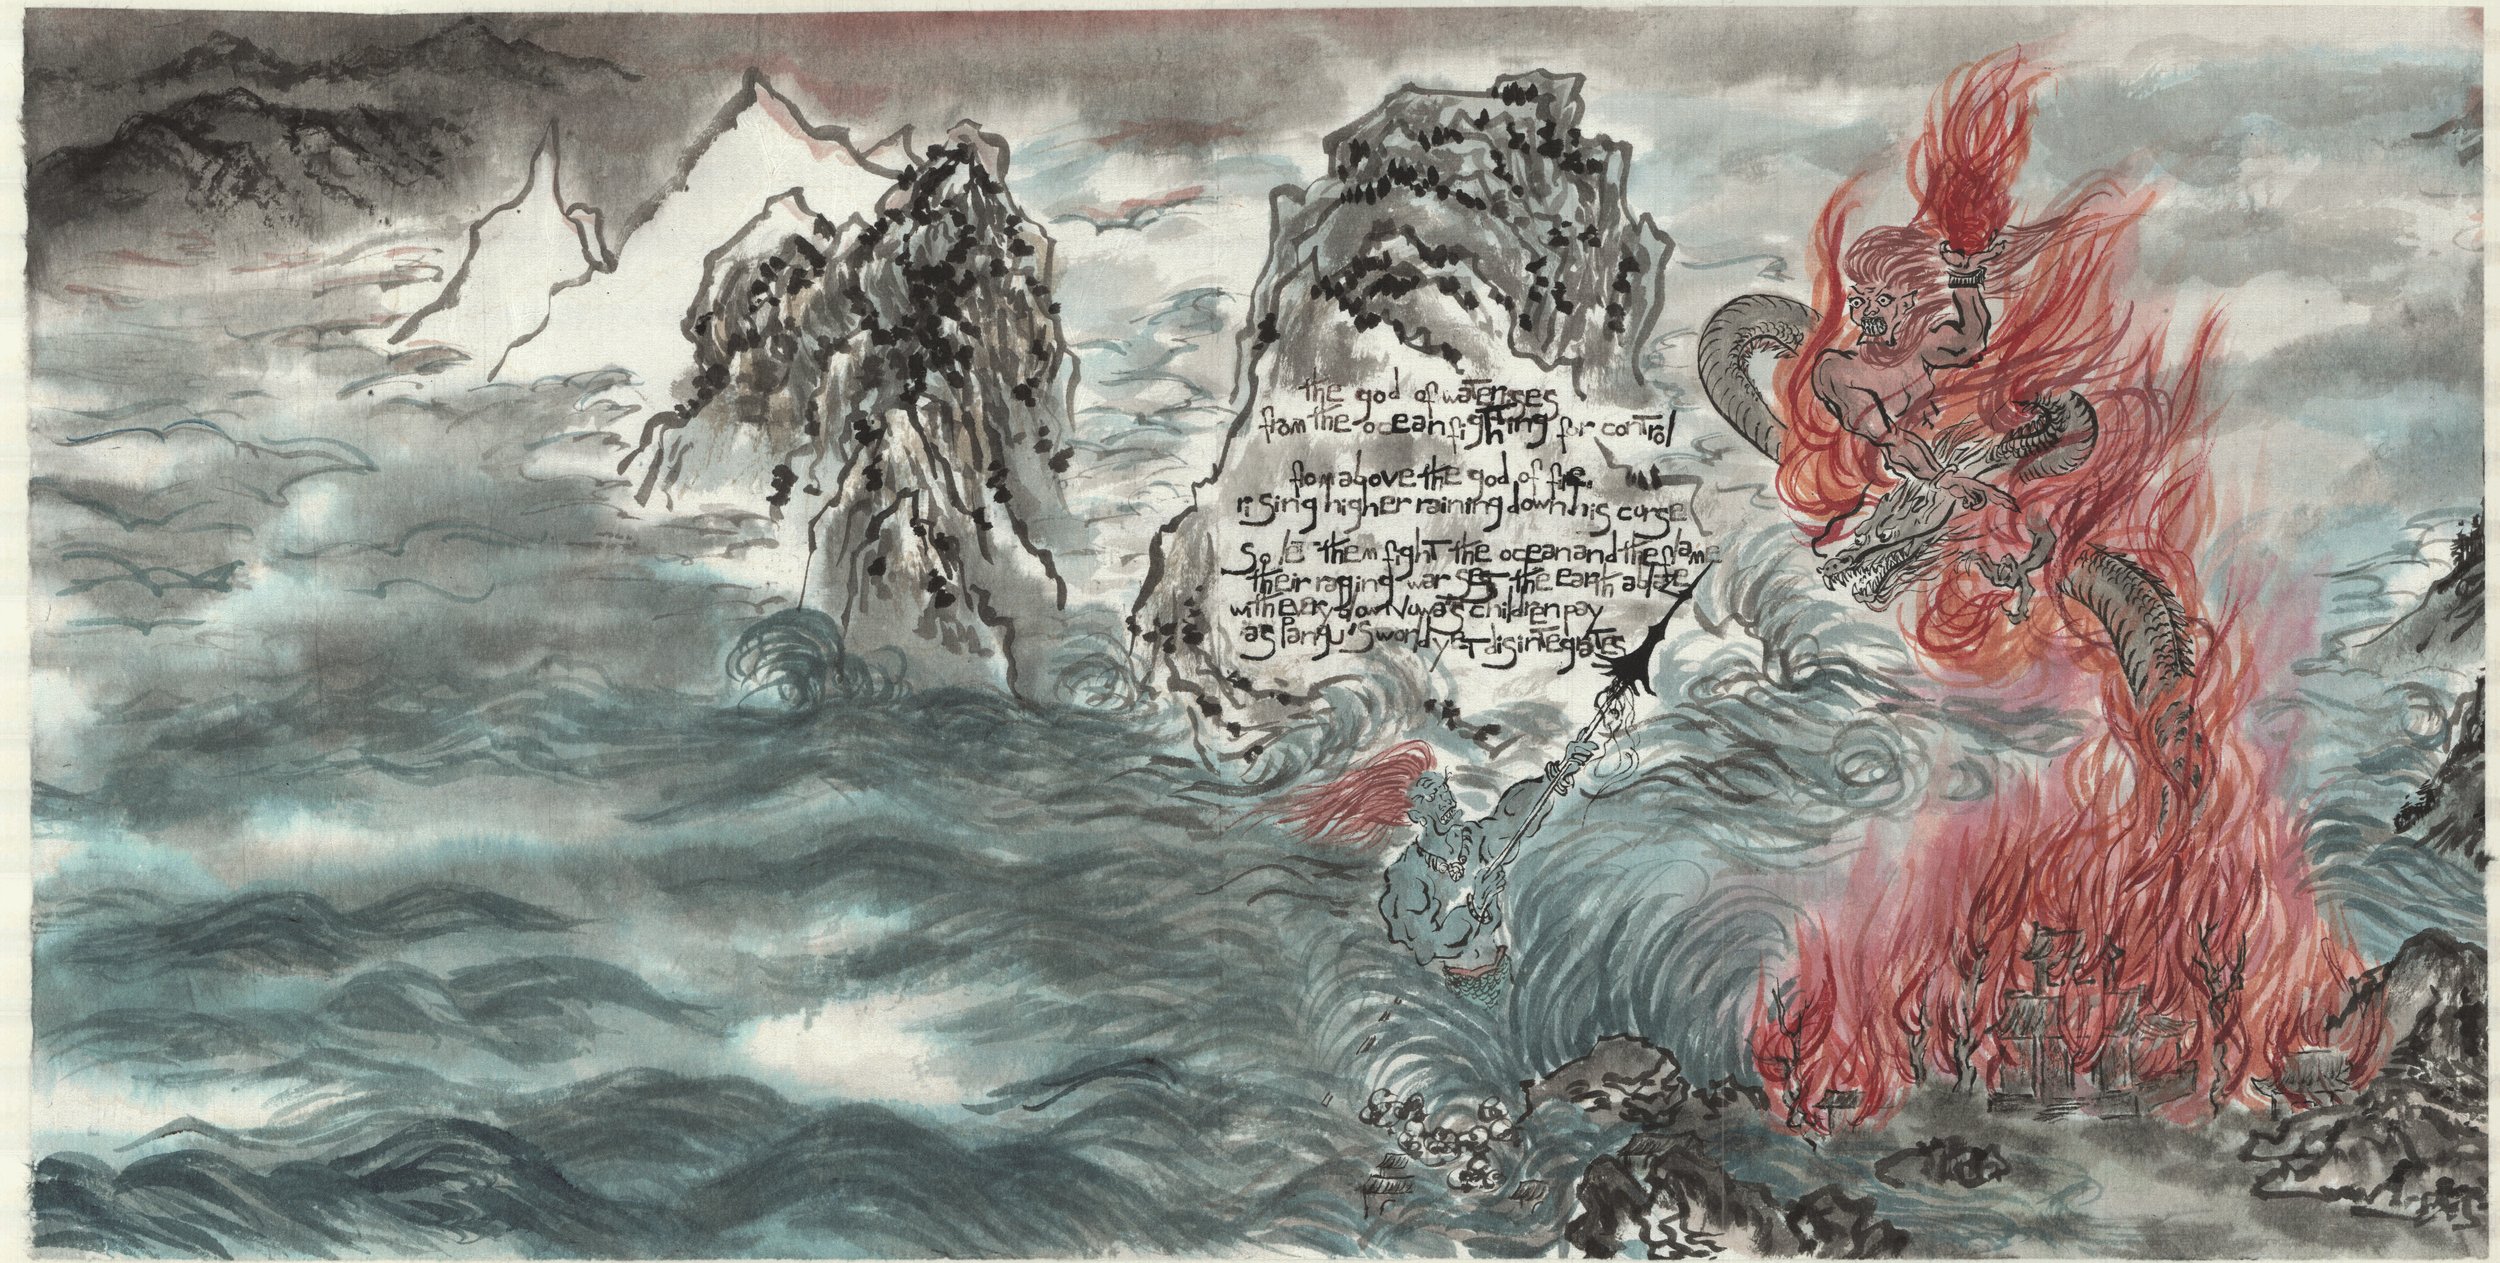 the god of water rises
from the ocean fighting for control
from above the god of fire,
rising higher raining down his curse
So let them fight the ocean and the flame
their raging war sets the earth ablaze
with every blow Nuwa's children pay
as Pangu's world yet disintegrates